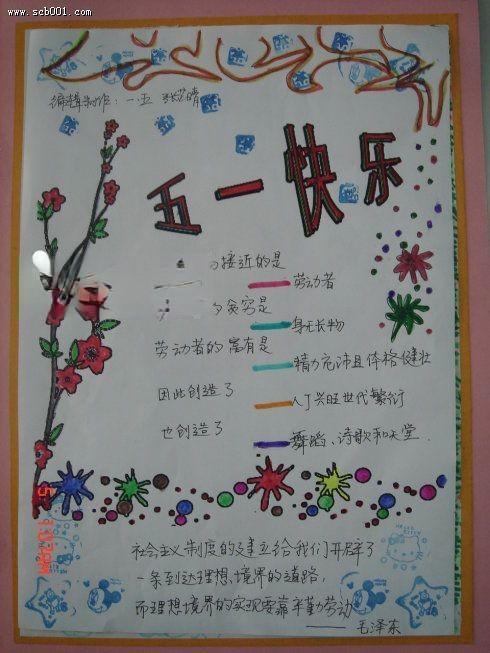 www.scb001.com
编辑制作：一.五 张艺晴
五一快乐
的接近的是
劳动者
的贫穷是
身无长物
劳动者的富有是
精力充沛且体格健壮
因此创造了
人丁兴旺世代繁衍
也创造了
舞蹈、诗歌和天堂.
社会主义制度的建立给我们开辟了
一条到达理想境界的道路,
而理想境界的实现要靠辛勤劳动
——毛泽东
HELLO KITTY